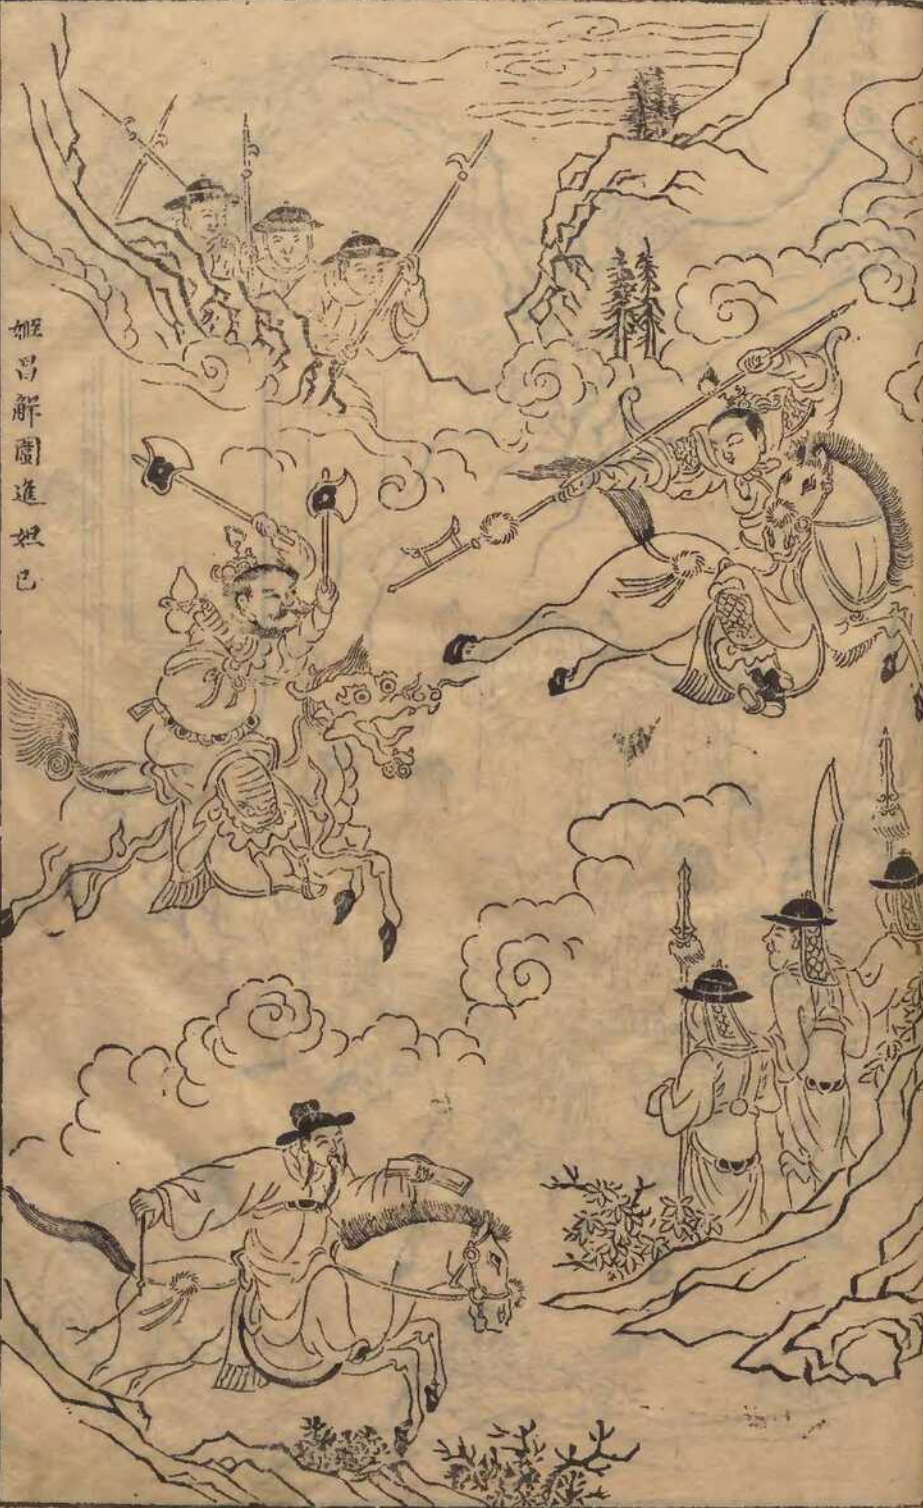 姬昌解圍進妲己